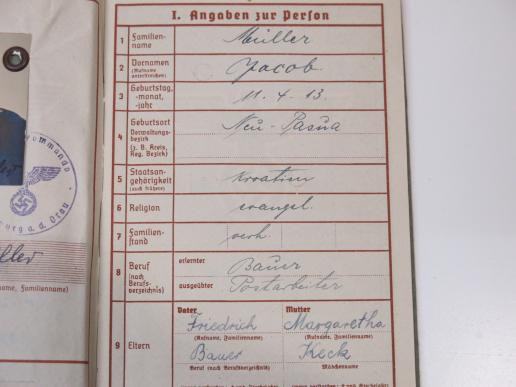 I. Angaben zur Person
1 Familien-
name
Müller
2 Vornamen
(Rufname
unterstreichen)
Jacob
3 Geburtstag,
-monat,
-jahr
11. 4. 13.
4 Geburtsort
Verwaltungs-
bezirk
(z. B. Kreis,
Reg. Bezirk)
Neu-Pasua
5 Staatsan-
gehörigkeit
(auch frühere)
Kroatien
6 Religion
evangel.
7 Familien-
stand
verh.
8 Beruf
(nach
Berufs-
verzeichnis)
erlernter
Bauer
ausgeübter
Postarbeiter
9 Eltern
Vater
Friedrich
(Rufname, Familienname)
Bauer
Beruf (nach Berufsverzeichnis)
Mutter
Margaretha
(Rufname, Familienname)
Keck
Mädchenname
kommando
burg a. d. Drau
ller
me, Familienname)